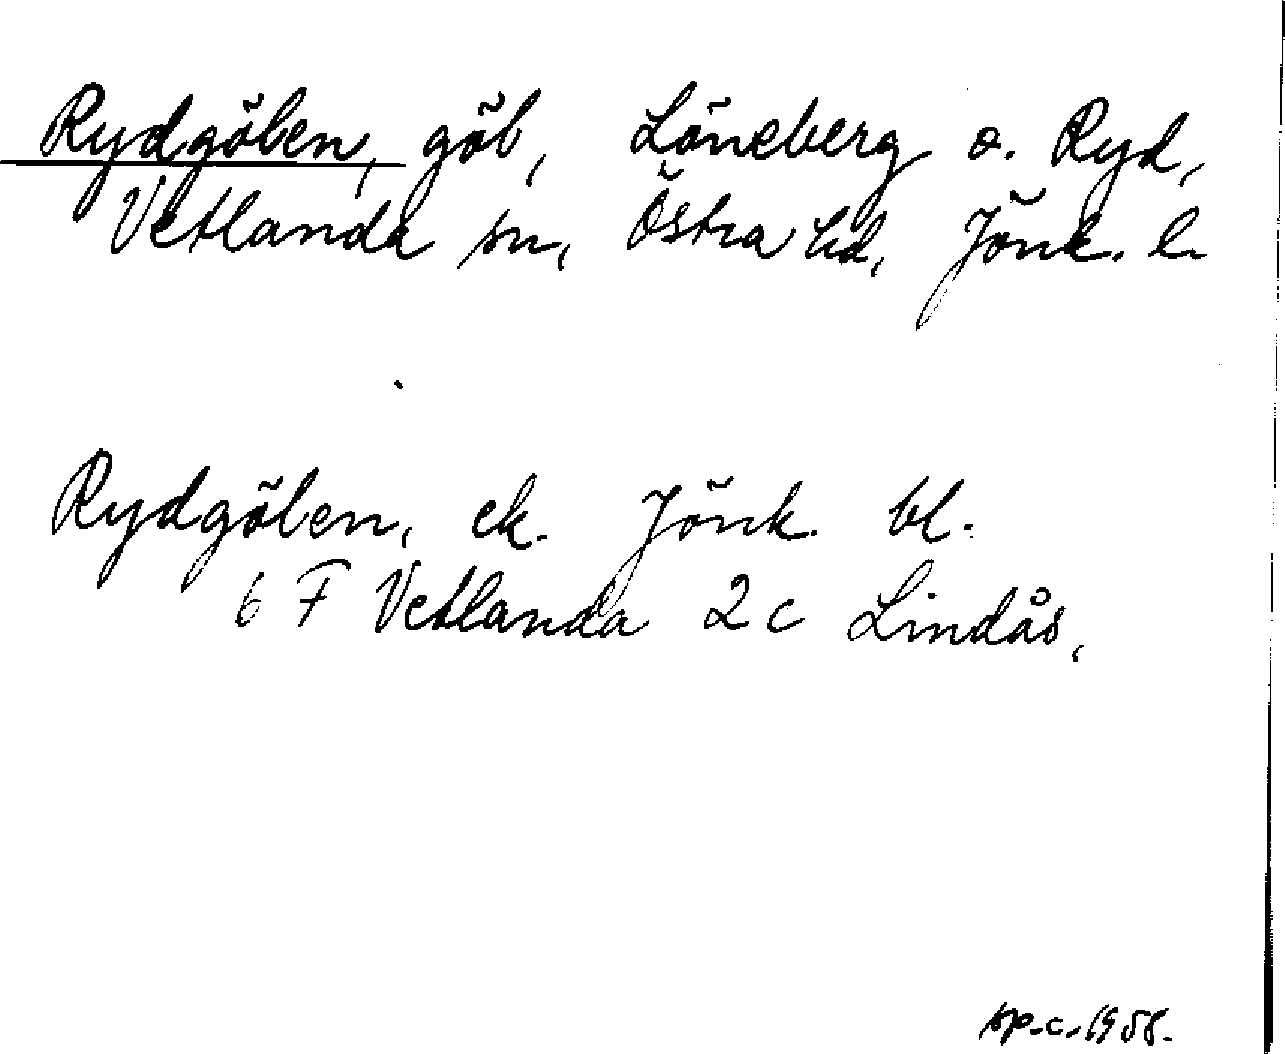 Rydgölen, göl, Löneberg o. Ryd,
Vetlanda sn, Östra hd, Jönk. l.
Rydgölen, ek. Jönk. bl.
6 F Vetlanda 2 c Lindås,
sp.c. 1958.